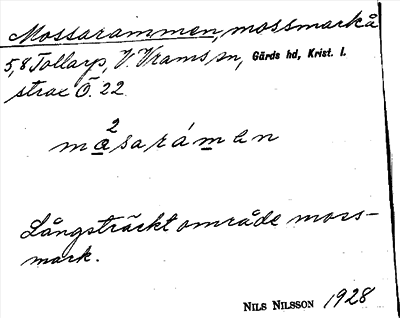 Mossarammen, mossmark å
5,8 Tollarp, V. Vrams sn, Gärds hd, Krist. l.
strax Ö. 22
2
mo̲sarám̲en
Långsträckt område moss-
mark.
NILS NILSSON 1928